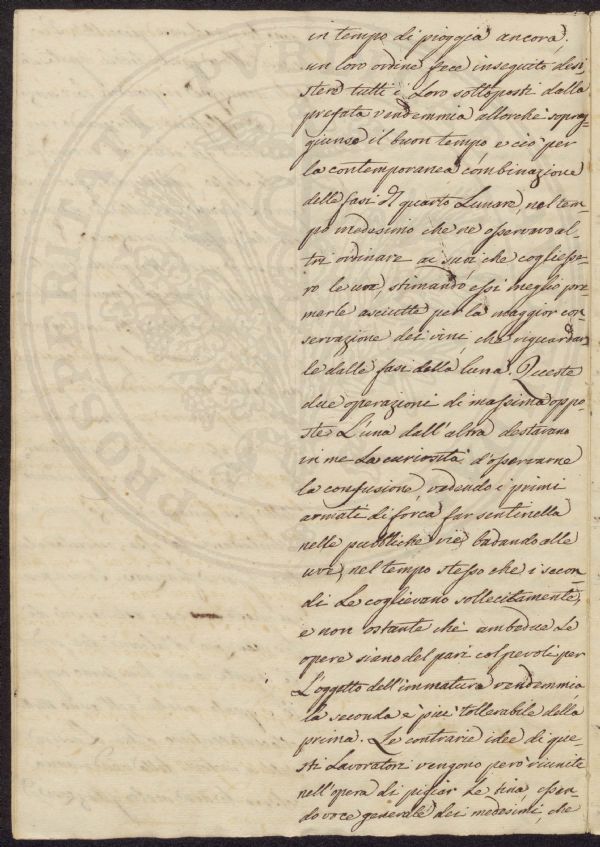 in tempo di pioggia ancora;
un loro ordine fece inseguito desi¸
stere tutti i Loro sottoposti dalla
prefata vendemmia allorchè soprag¸
giunse il buon tempo e ciò per
la contemporanea combinazione
delle fasi del quarto Lunare, nel tem¸
po medesimo che ne osservavo al¸
tri ordinare ai suoi che cogliesse¸
ro le uve, stimando essi meglio pre¸
merle asciutte per la maggior con¸
servazione dei vini, che riguardar¸
le dalle fasi della luna. Queste
due operazioni di massima oppo¸
ste L'una dall'altra destavano
in me La curiosità d'osservarne
la confusione, vedendo i primi
armati di forca far sentinella
nelle pubbliche vie, badando alle
uve, nel tempo stesso che i secon¸
di Le coglievano sollecitamente,
e non ostante che ambedue Le
opere siano del pari colpevoli per
L'oggetto dell'immatura vendemmia
la seconda è più tollerabile della
prima. Le contrarie idee di que¸
sti Lavoratori vengono però riunite
nell'opera di pigiar Le tina, essen¸
do voce generale dei medesimi, che